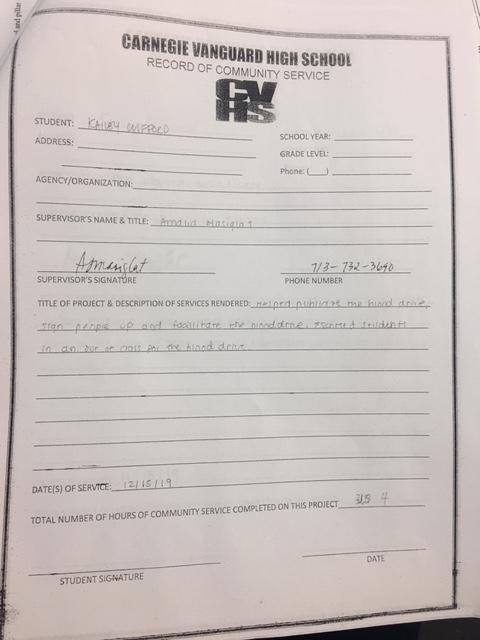 and pillar
CARNEGIE VANGUARD HIGH SCHOOL
RECORD OF COMMUNITY SERVICE
CV
HS
STUDENT: KAILEY
SCHOOL YEAR:
ADDRESS:
GRADE LEVEL:
Phone: (__)
AGENCY/ORGANIZATION:
SUPERVISOR'S NAME & TITLE: Amalia
713-732-3690
SUPERVISOR'S SIGNATURE PHONE NUMBER
TITLE OF PROJECT & DESCRIPTION OF SERVICES RENDERED: Helped publicize the blood drive,
sign people up and facilitate the blood drive. Escorted students
in an out of class for the blood drive
DATE(S) OF SERVICE: 12/15/19
TOTAL NUMBER OF HOURS OF COMMUNITY SERVICE COMPLETED ON THIS PROJECT 4
STUDENT SIGNATURE DATE